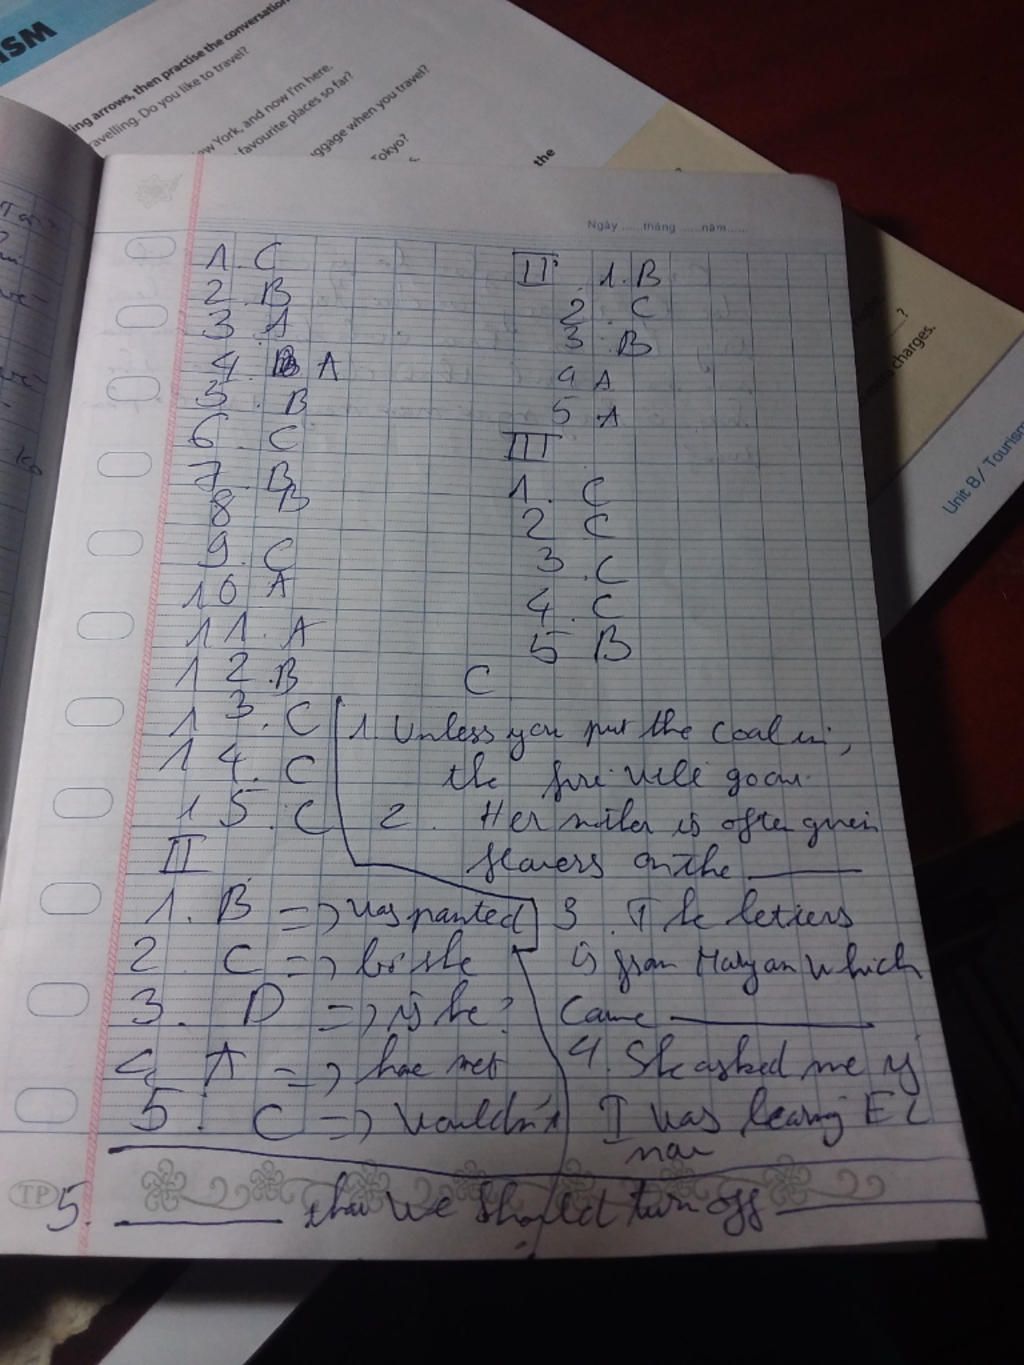 ISM
ing arrows, then practise the conversation
ravelling. Do you like to travel?
ew York, and now I'm here.
favourite places so far?
ggage when you travel?
Tokyo?
the
?
extra charges.
Unit 8/ Tourism
Ngày ......tháng ......năm......
1. C
2. B
3. A
4. A
5. B
6. C
7. B
8 B
9. C
10 A
11. A
12. B
13. C
14. C
15. C
II
1. B => was painted
2. C => by the
3. D => is he?
4 A => have met
5. C => wouldn't
II 1. B
2. C
3. B
4 A
5 A
III
1. C
2 C
3. C
4. C
5 B
C
1. Unless you put the coal in,
the fire will go out.
2. Her mother is often given
flowers on the ______
3. The letters
is from which
Came ______
4. She asked me if
I was learning
now
5. ______ that we should turn off ______
TP